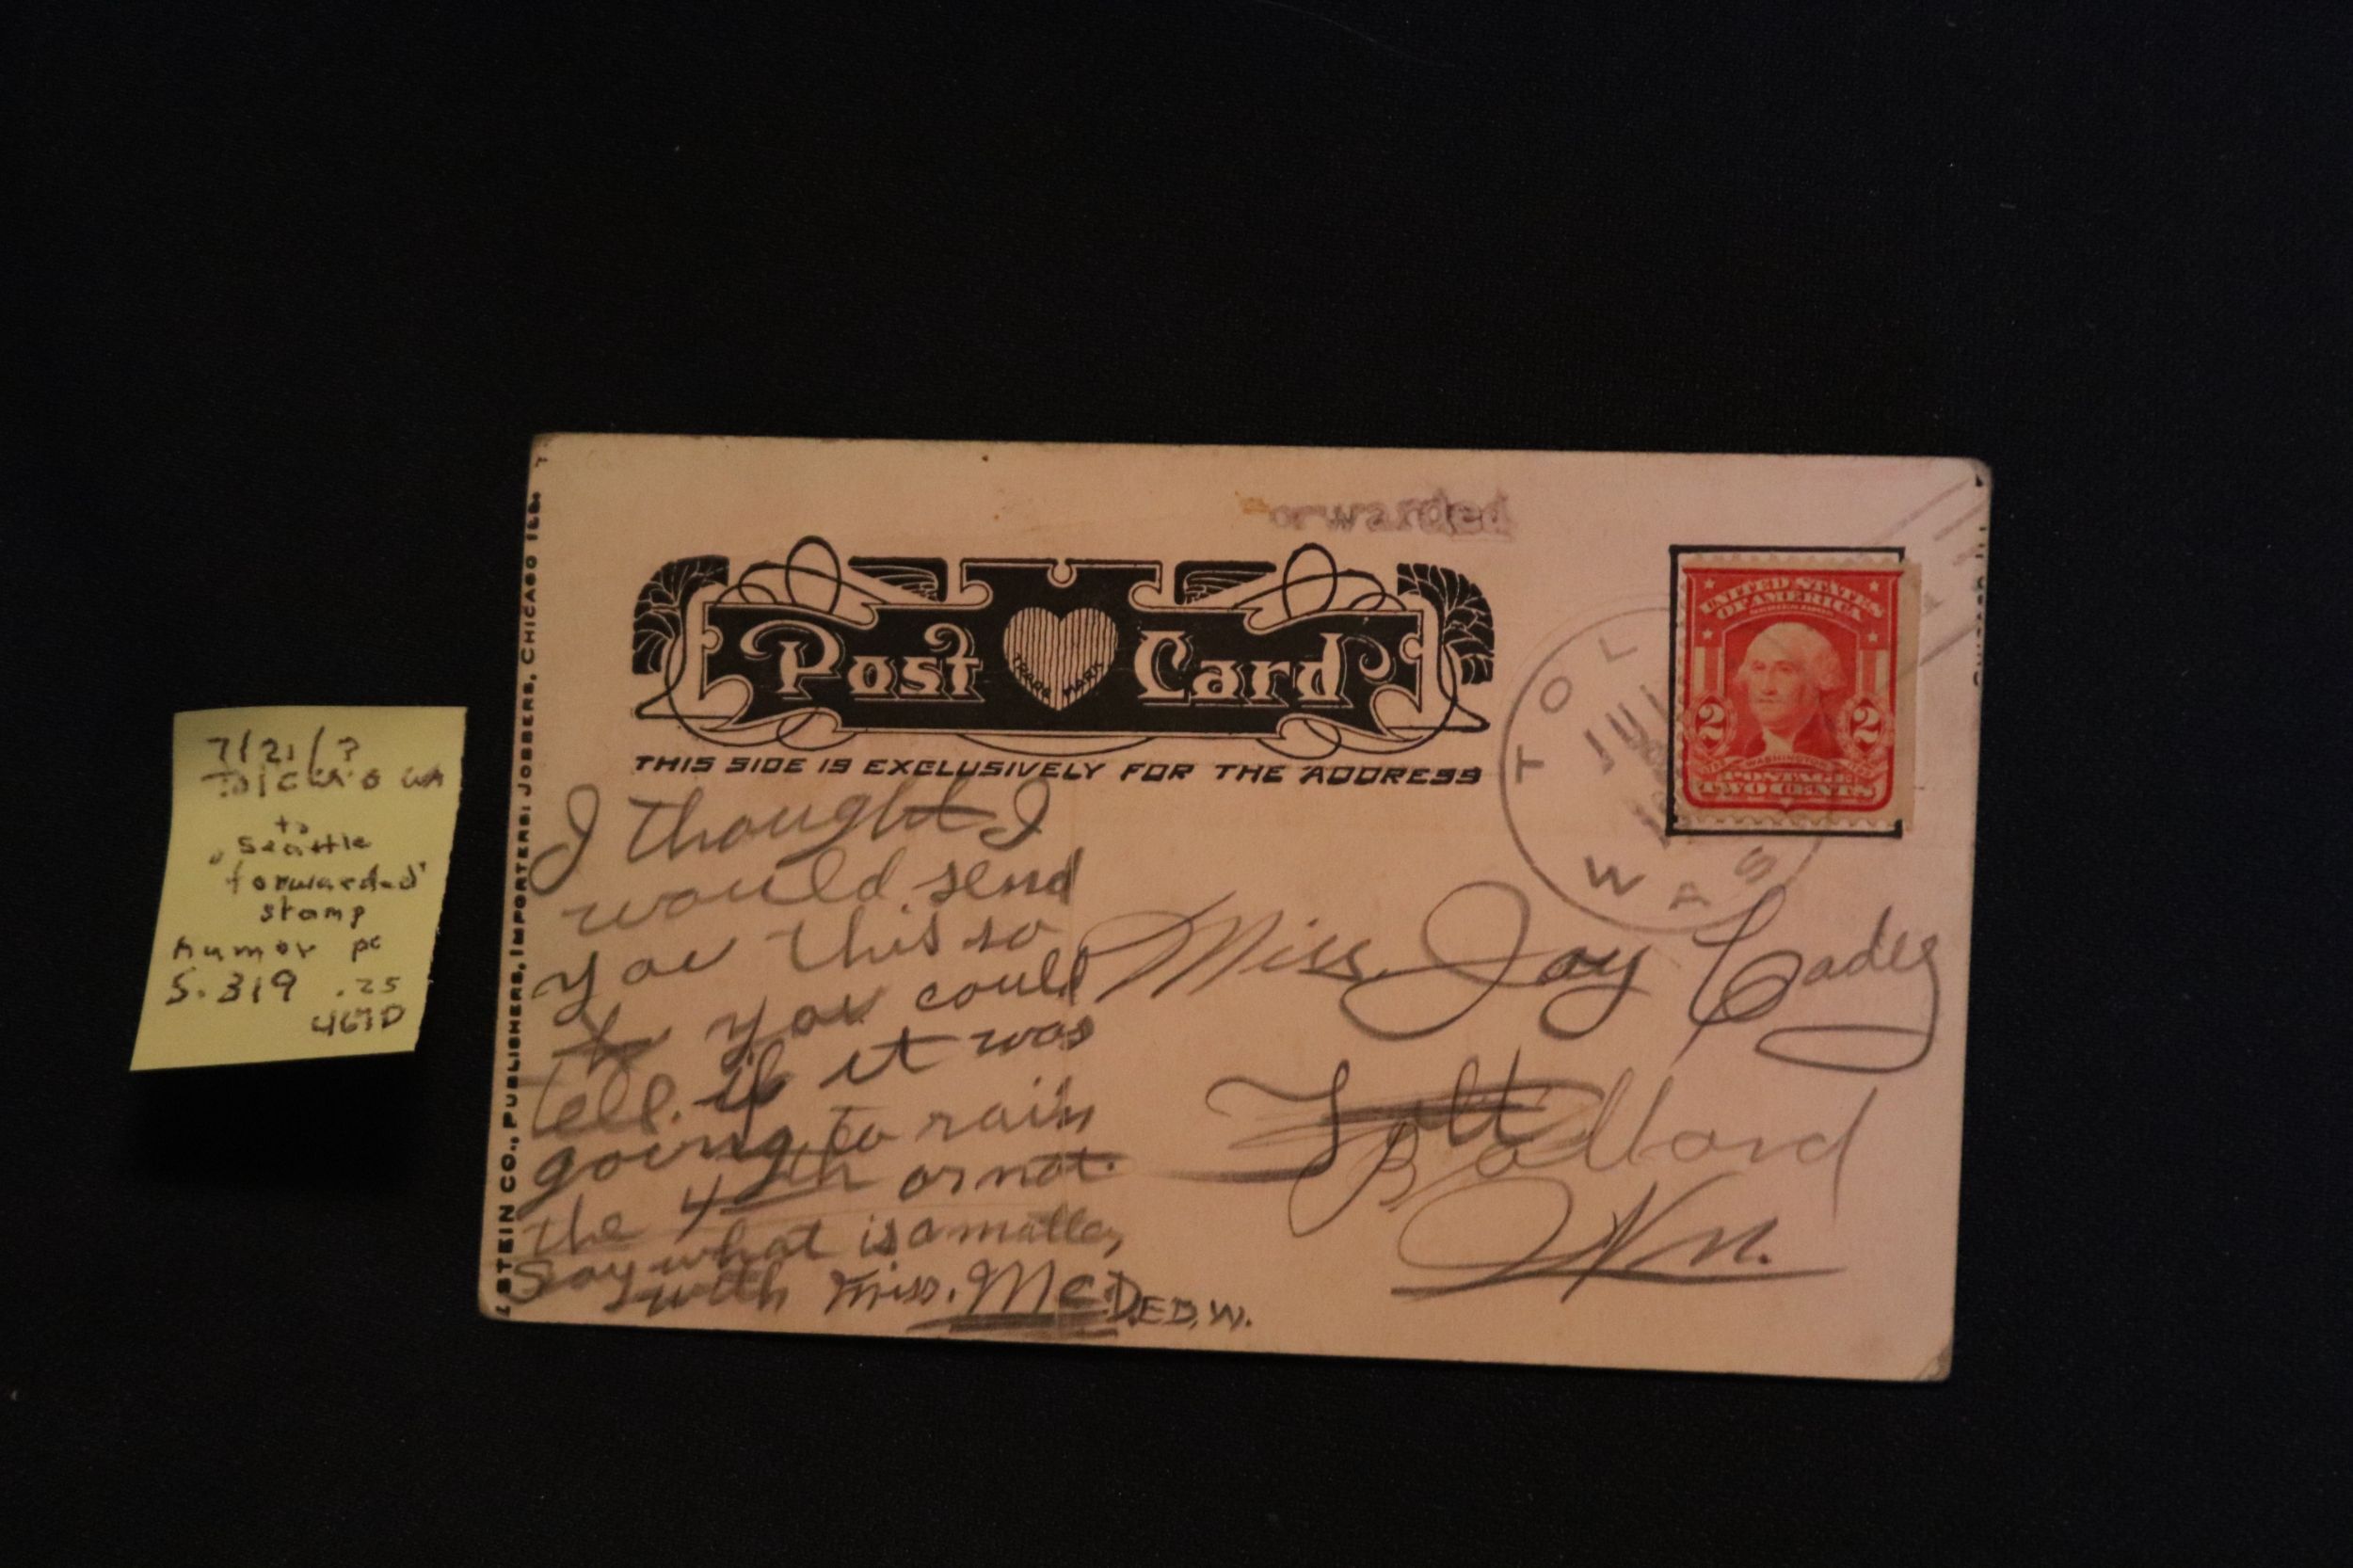 7/21/?
WA
to
Seattle
"forwarded"
stamp
humor pc
S. 319 .25
467D
STEIN CO., PUBLISHERS, IMPORTERS & JOBBERS, CHICAGO ILL.
orwarded
Post Card
TRADE MARK
THIS SIDE IS EXCLUSIVELY FOR THE ADDRESS
TOL
JUL
WAS
UNITED STATES
OF AMERICA
SERIES 1902
2 2
WASHINGTON
POSTAGE
TWO CENTS
I thought I
would send
you this so
you could
tell if it was
going to rain
the 4th or not.
Say what is a matter
with Miss. McD. E.D.W.
Miss. Joy Cadey
Tolt
Ballard
Wn.